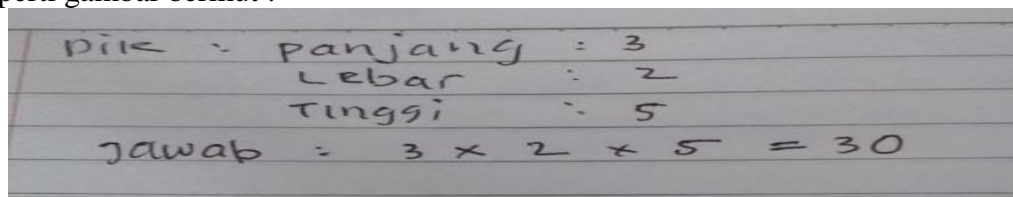 Dik : panjang : 3
Lebar : 2
Tinggi : 5
Jawab : 3 x 2 x 5 = 30